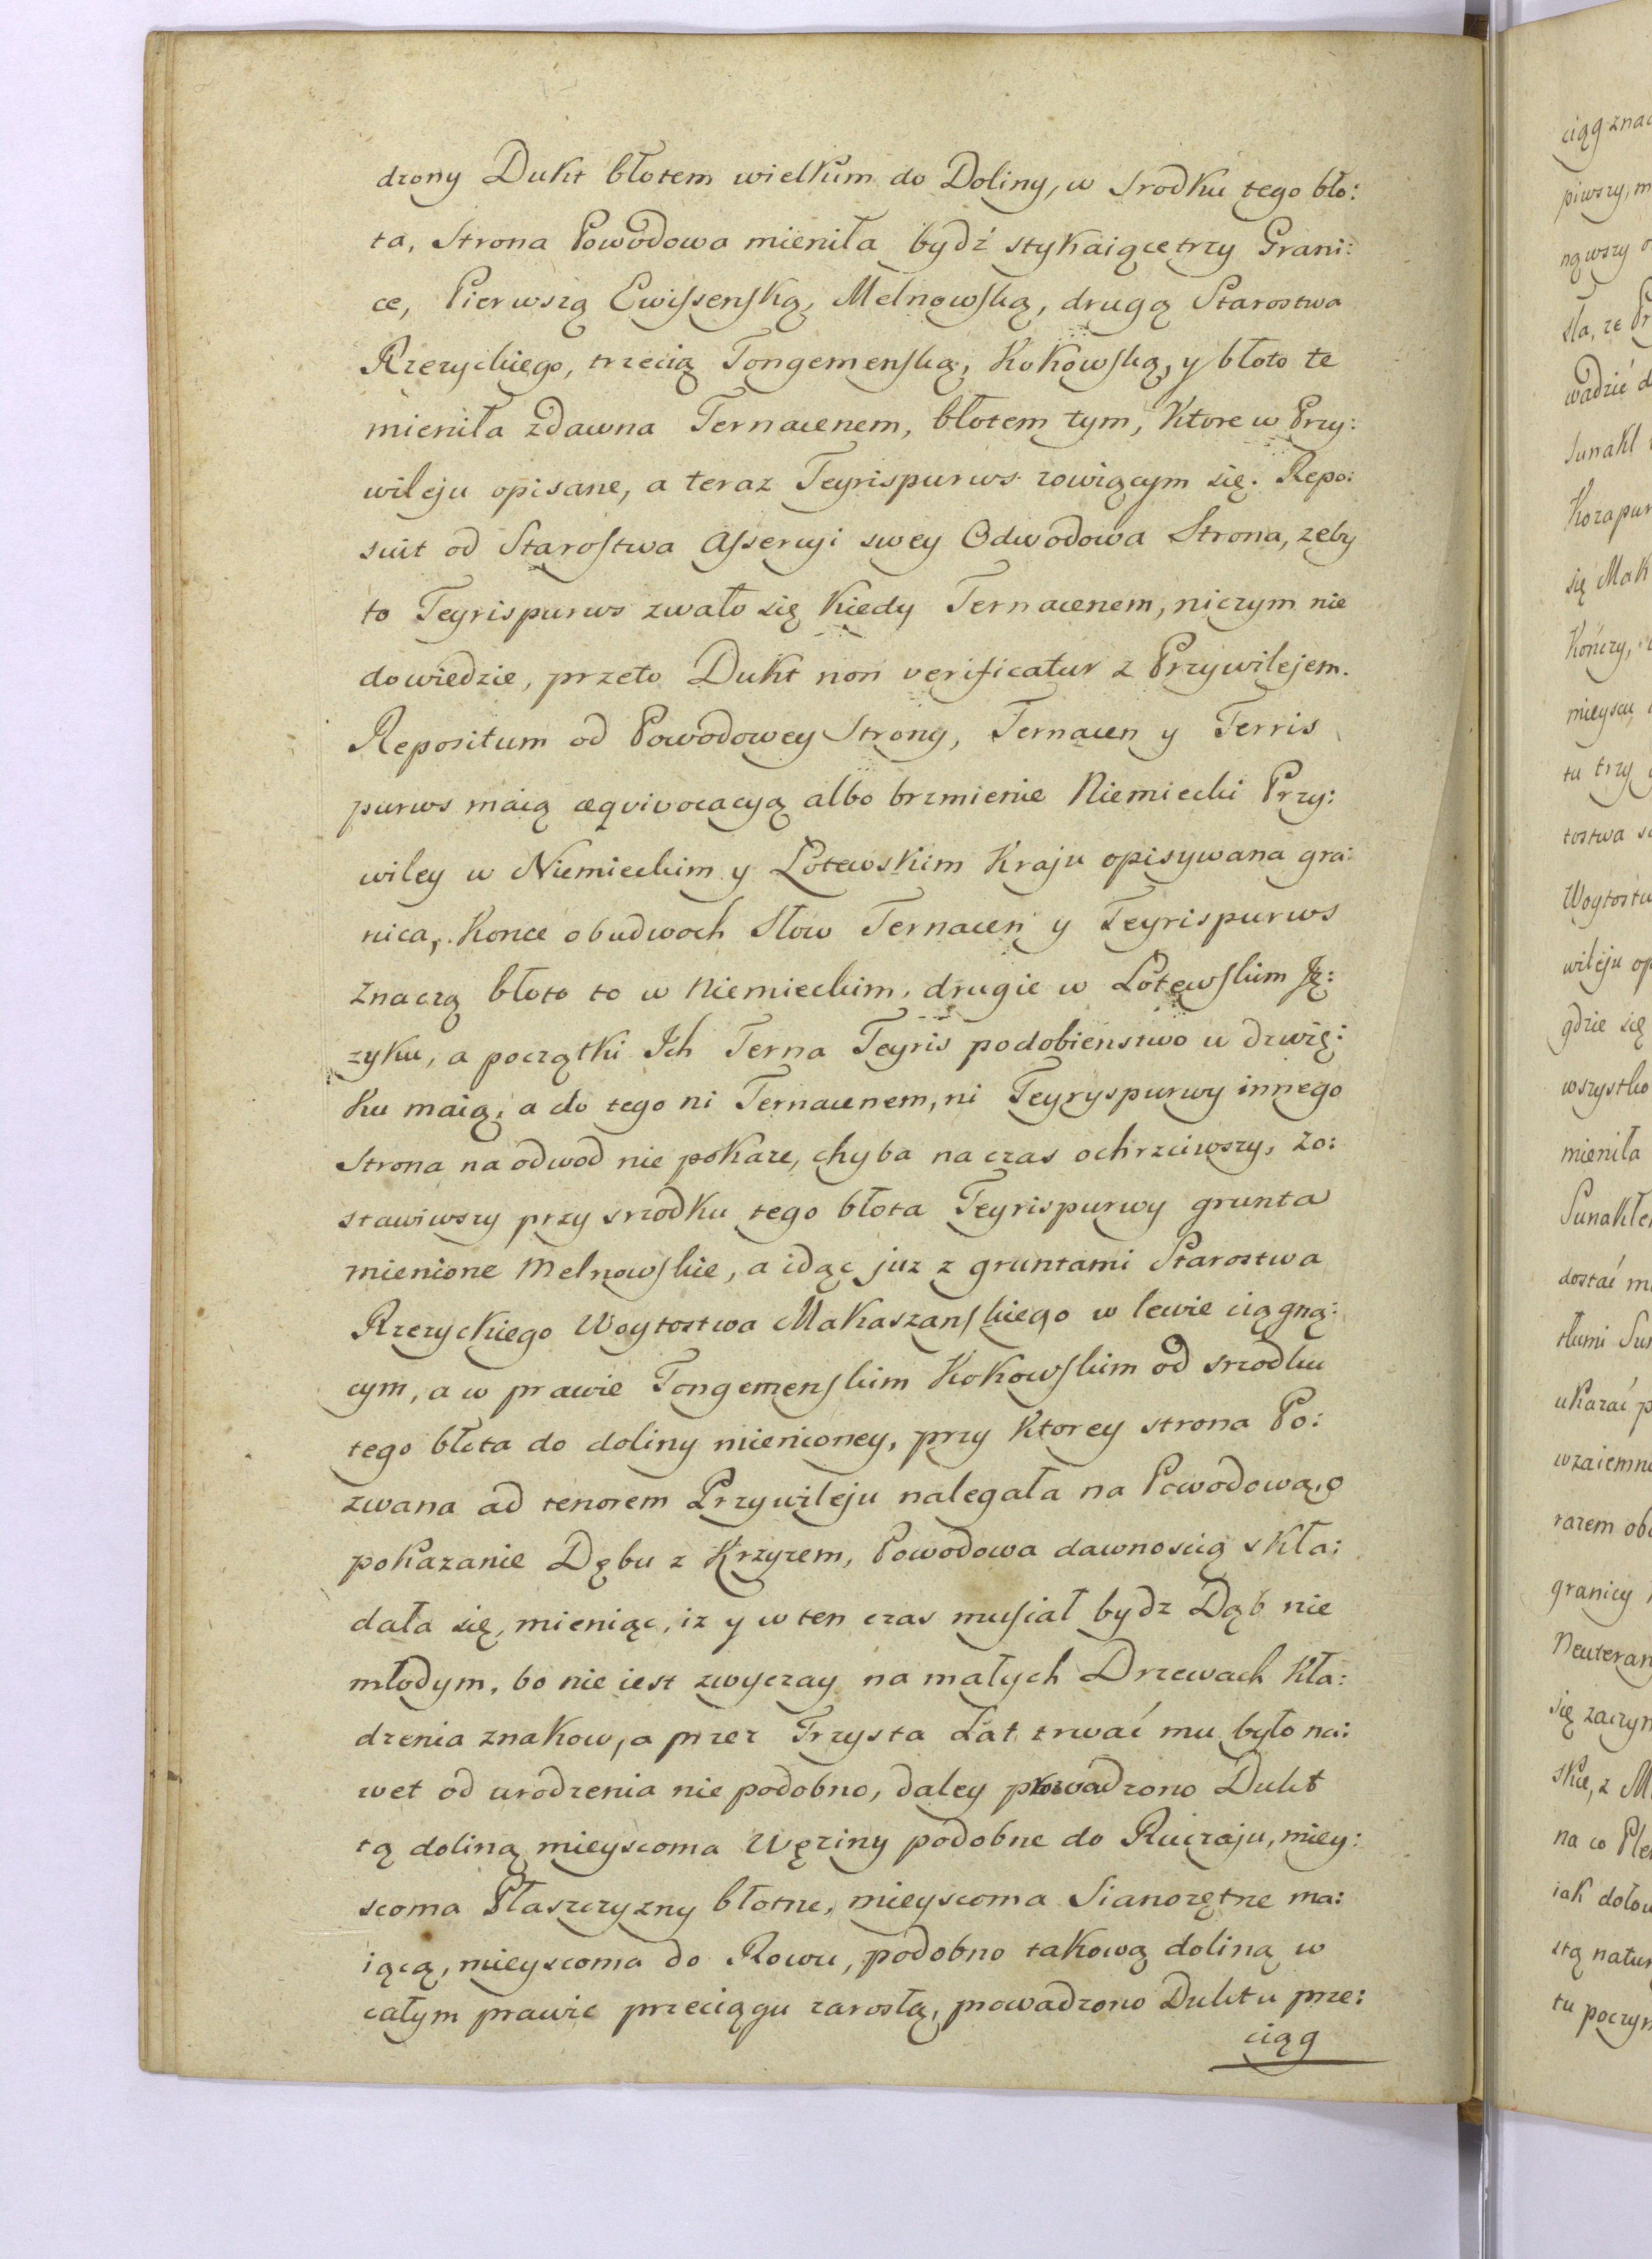 drony Dukt błotem wielkim do Doliny, w srodku tego bło:
ta, Strona Powodowa mieniła bydź stykaiące trzy Grani:
ce, Pierwszą Ewissenską, Melnowską, drugą Starostwa
Rzezyckiego, trzecią Tongemenską, Kokowską, y błoto te
mieniła zdawna Ternacenem, błotem tym, Ktore w Przy:
wileju opisane, a teraz Teyrispurws zowiącym się. Repo:
suit od Starostwa Assercyi swey Odwodowa Strona, zeby
to Teyrispurws zwało się kiedy Ternacenem, niczym nie
dowiedzie, przeto Dukt non verificatur z Przywilejem.
Repositum od Powodowey Strony, Ternacen y Terris
purws maią æqvivocacyą albo brzmienie Niemiecki Przy:
wiley w Niemieckim y Łotewskim Kraju opisywana gra:
nica, Konce obudwoch Słow Ternacen y Teyrispurws
znaczą błoto to w Niemieckim, drugie w Łotewskim Ję:
zyku, a początki Ich Terna Teyris podobienstwo w dzwię:
ku maią, a do tego ni Ternacenem, ni Teyryspurwy innego
Strona na odwod nie pokaze, chyba na czas ochrzciwszy, Zo:
stawiwszy przy srzodku tego błota Teyrispurwy grunta
mienione Melnowskie, a idąc juz z gruntami Starostwa
Rzezyckiego Woytostwa Makaszanskiego w lewie ciągną:
cym, a w prawie Tongemenskim Kokowskim od srzodku
tego błota do doliny mienioney, przy Ktorey strona Po:
zwana ad tenorem Przywileju nalegała na Powodową, o
pokazanie Dębu z Krzyzem, Powodowa dawnoscią skła:
dała się, mieniąc, iz y w ten czas musiał bydz Dąb nie
młodym, bo nie iest zwyczay na małych Drzewach kła:
dzenia znakow, a przez Trzysta Lat trwać mu było na:
wet od urodzenia nie podobno, daley prowadzono Dukt
tą doliną mieyscoma Węziny podobne do Ruczaju, miey:
scoma Płaszczyzny błotne, mieyscoma Sianozętne ma:
iącą, mieyscoma do Rowu, podobno takową doliną w
całym prawie przeciągu zarosłą, prowadzono Duktu prze:
ciąg